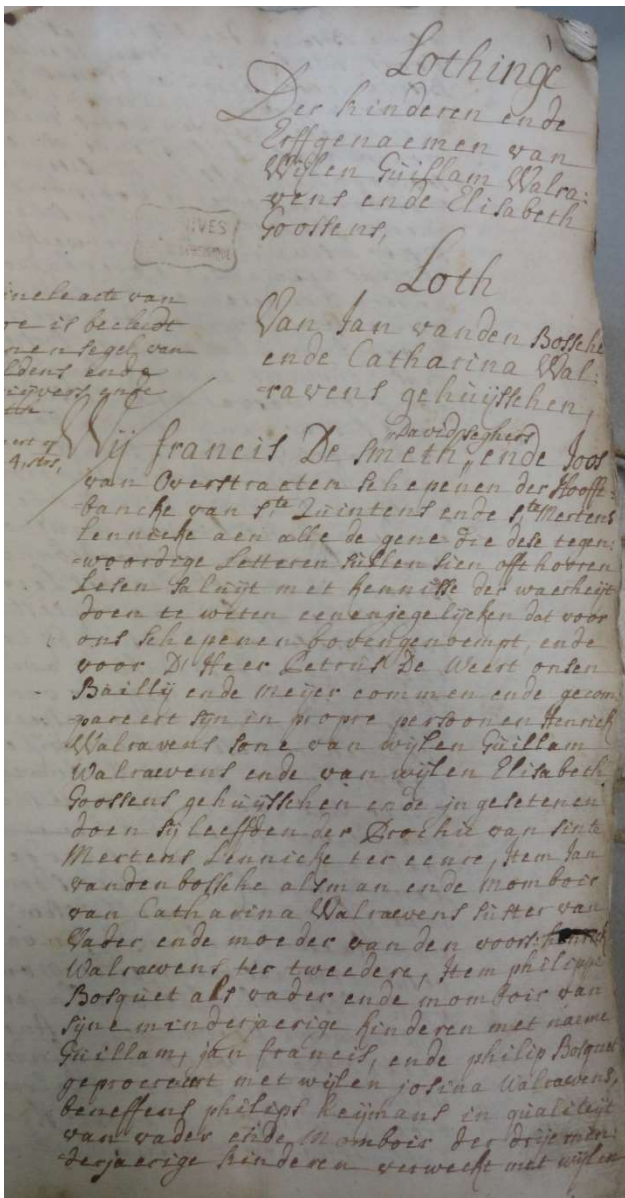 Lothinge
Der kinderen ende
Erffgenaemen van
Wijlen Guillam Walra:
vens ende Elisabeth
Goossens,
Loth
Van Jan vanden Bossche
ende Catharina Wal:
ravens gehuijsschen,
van
re is becleedt
segel van
ldens ende
ende
4, strs,
IVES
Wij francis De Smeth, David Seghers ende Joos
van Overstraeten schepenen der Hooft:
bancke van ste. Quintens ende ste Mertens
lennicke aen alle de gene die dese tegen:
woordige Letteren sullen sien oft hooren
Lesen saluijt met kennisse der waerheijt
doen te weten eenenjegelijcken dat voor
ons schepenen bovengenoempt, ende
voor D'Heer Petrus De Weert onsen
Bailly ende meijer commen ende gecom:
pareert sijn in propre persoonen Henrick
Walravens sone van wijlen Guillam
Walraevens ende van wijlen Elisabeth
Goossens gehuijsschen ende jngesetenen
doen sij leeffden der Prochie van sinte
Mertens Lennicke ter eenre, Item Jan
vandenbossche als man ende momboir
van Catharina Walraevens suster van
Vader ende moeder van den voors. henrick
Walraevens ter tweedere, Item philippe
Bosquet als vader ende mombois van
sijne minderjaerige kinderen met naeme
Guillam, jan francis, ende philip Bosquet
geprocreert met wijlen josina Walraevens,
beneffens philips heijmans in qualiteijt
van vader ende Mombois der drije min:
derjaerige kinderen verweckt met wijlen